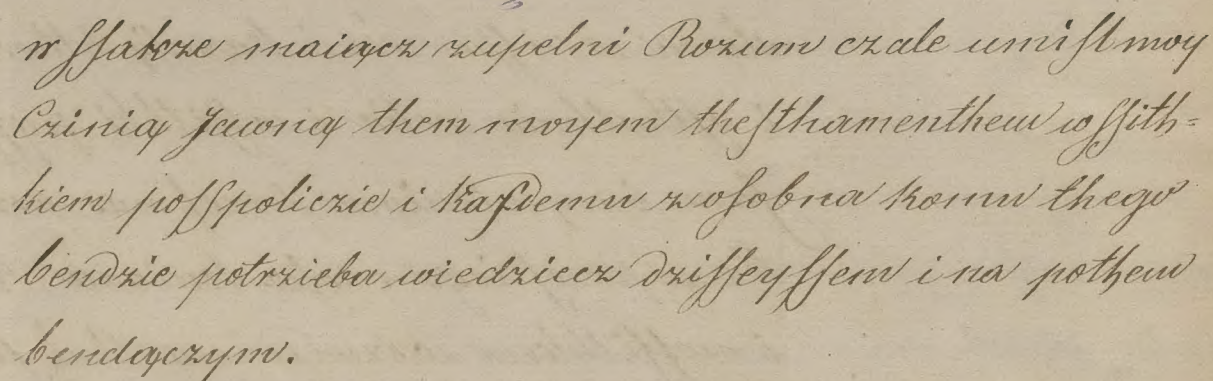 w ſſakże maiącz zupełni Rozum czałe umiſl moy
Czinią Jawną them moyem theſthamenthem wſſith=
kiem poſſpoliczie i każdemu z oſobna komu thego
bendzie potrzieba wiedziecz dziſſeyſſem i na pothem
bendączym.